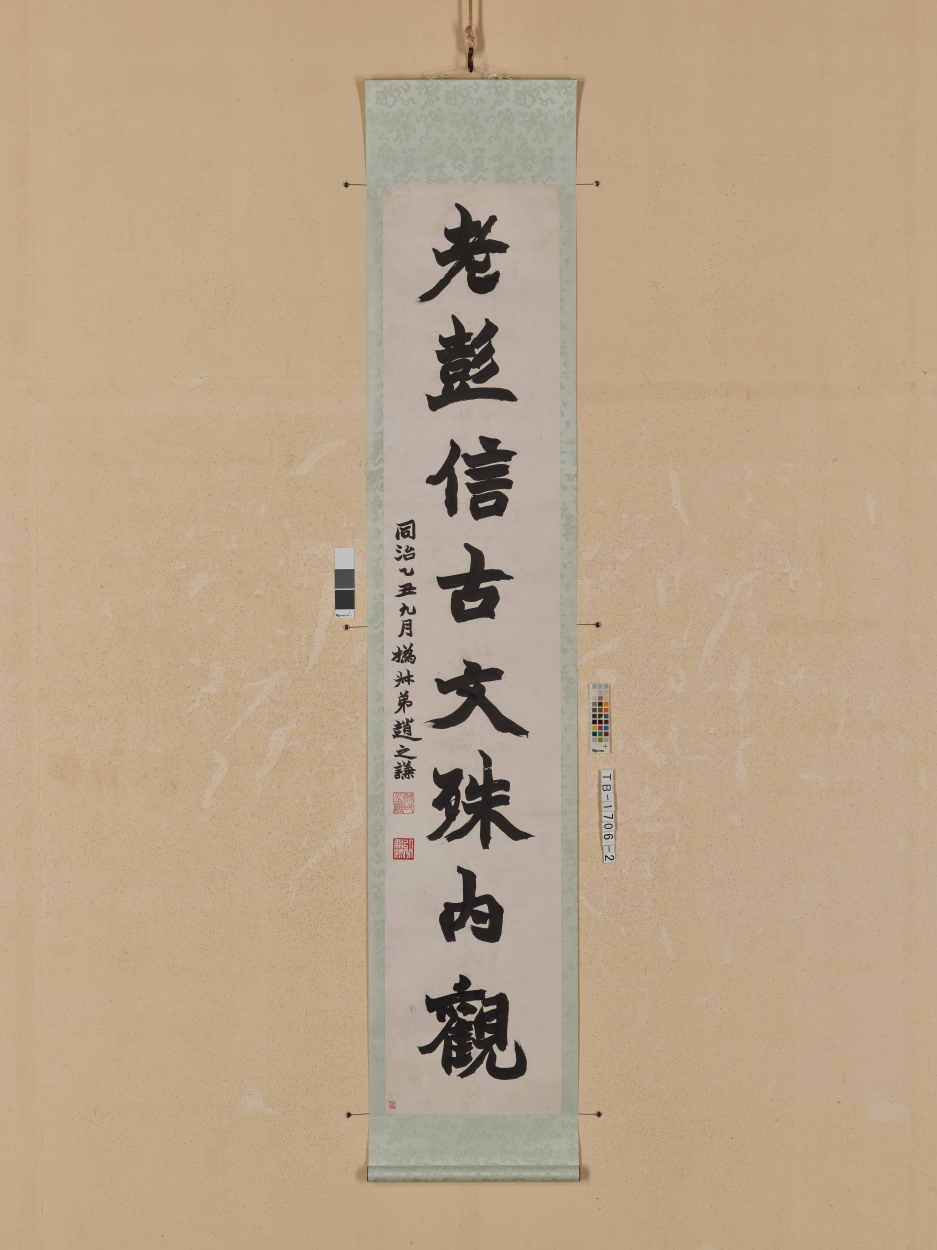 老彭信古文殊内觀
同治乙丑九月撝叔弟趙之謙
TB-1706-2